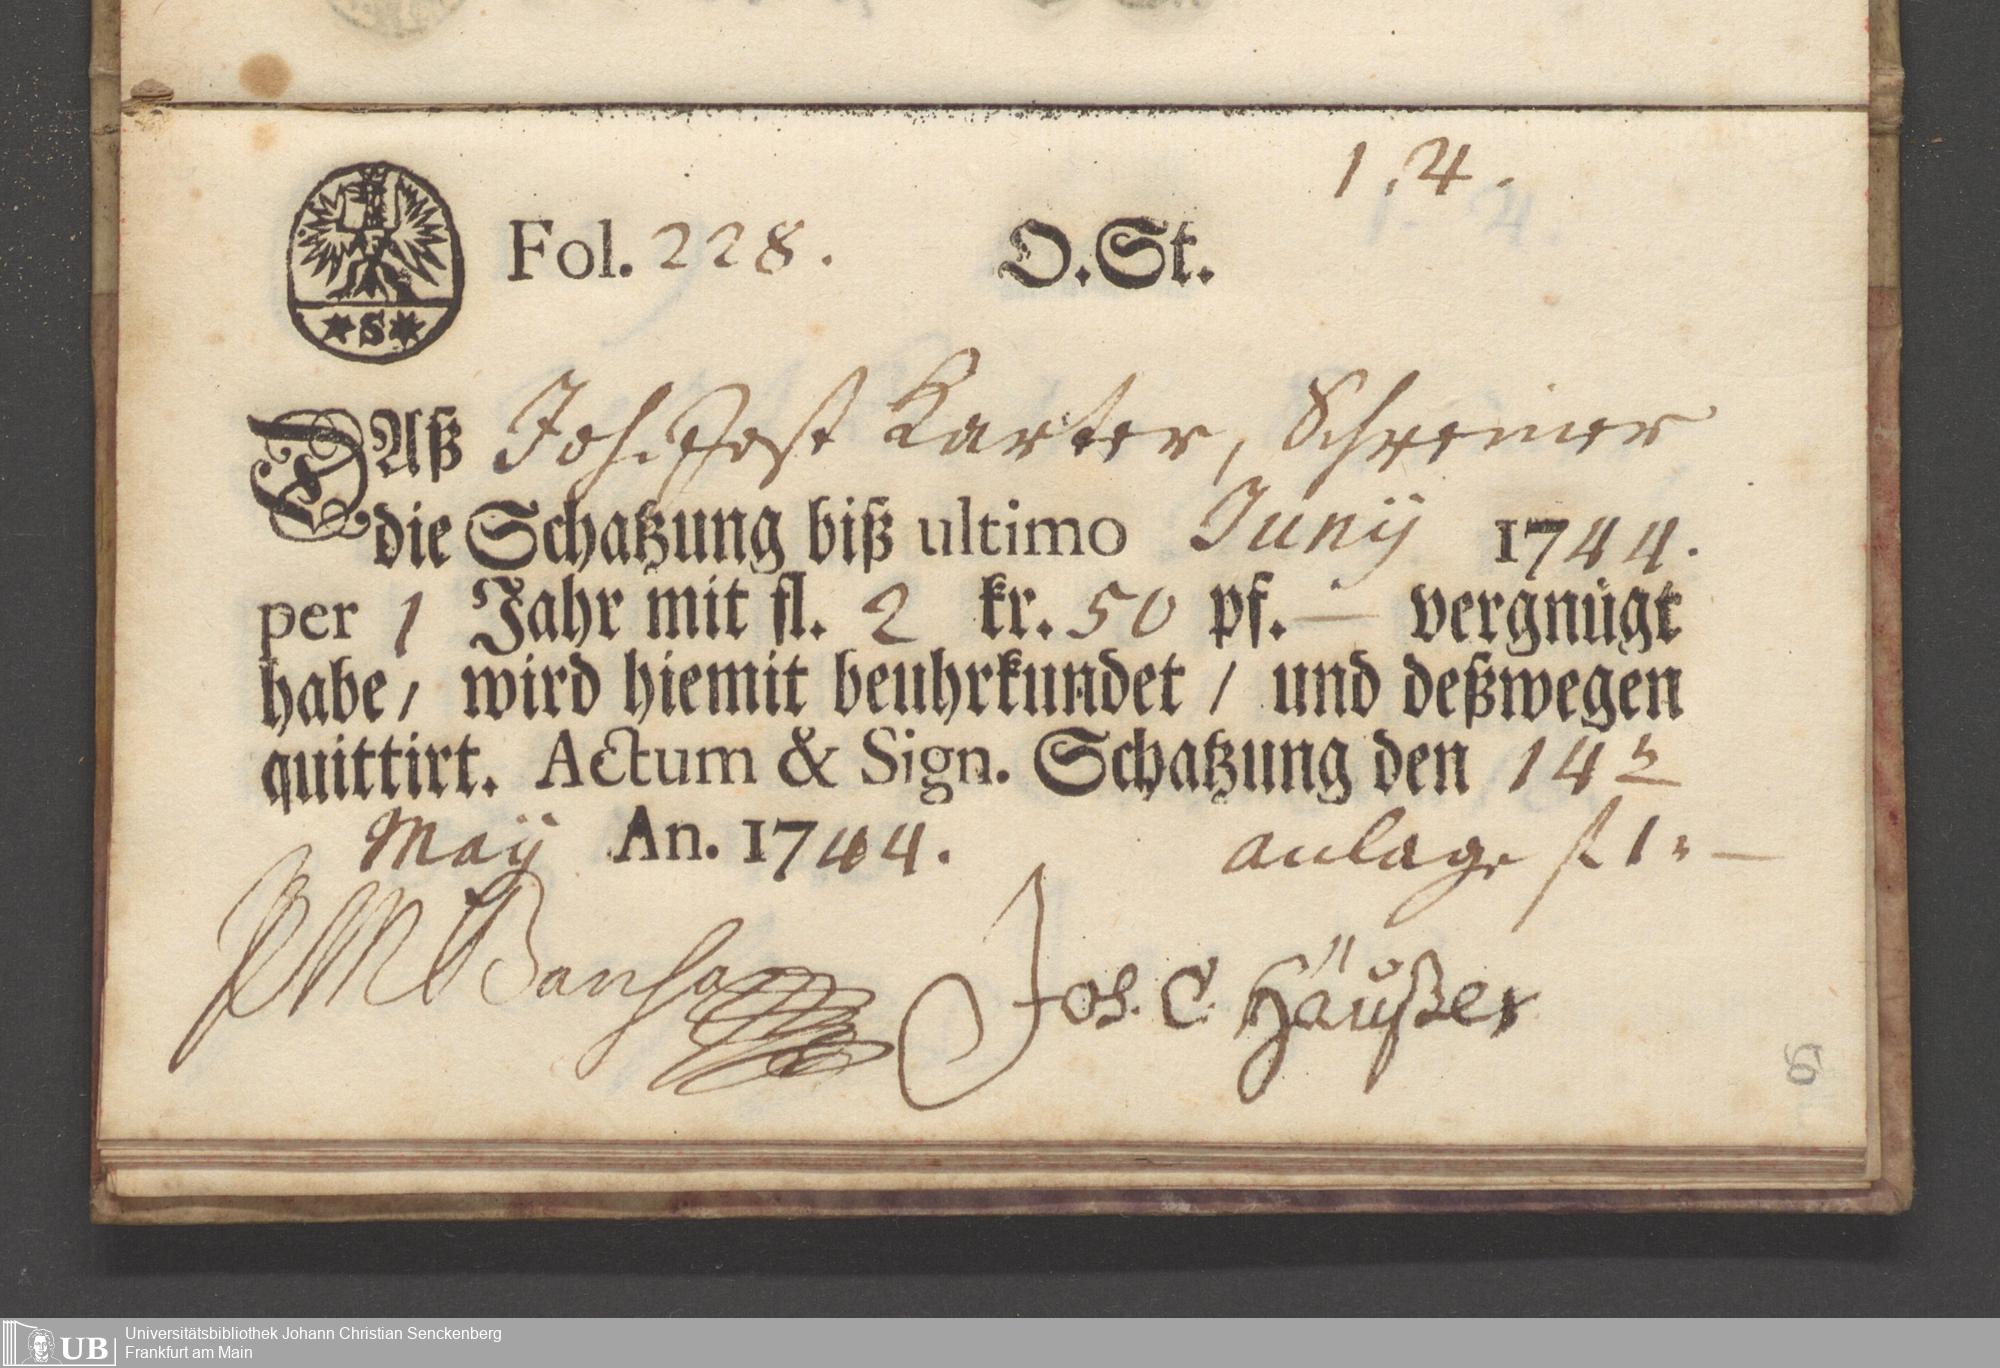 1. 4.
Fol. 228. O.St.
*S*
DAß Joh. Jost Karter, Schreiner
die Schatzung biß ultimo Junij 1744.
per 1 Jahr mit fl. 2 kr. 50 pf. — vergnügt
habe / wird hiemit beuhrkundet / und deßwegen
quittirt. Actum & Sign. Schatzung den 14
Maij An. 1744. anlage fl 1 : —
Joh. C. Häußer
Universitätsbibliothek Johann Christian Senckenberg
Frankfurt am Main
UB